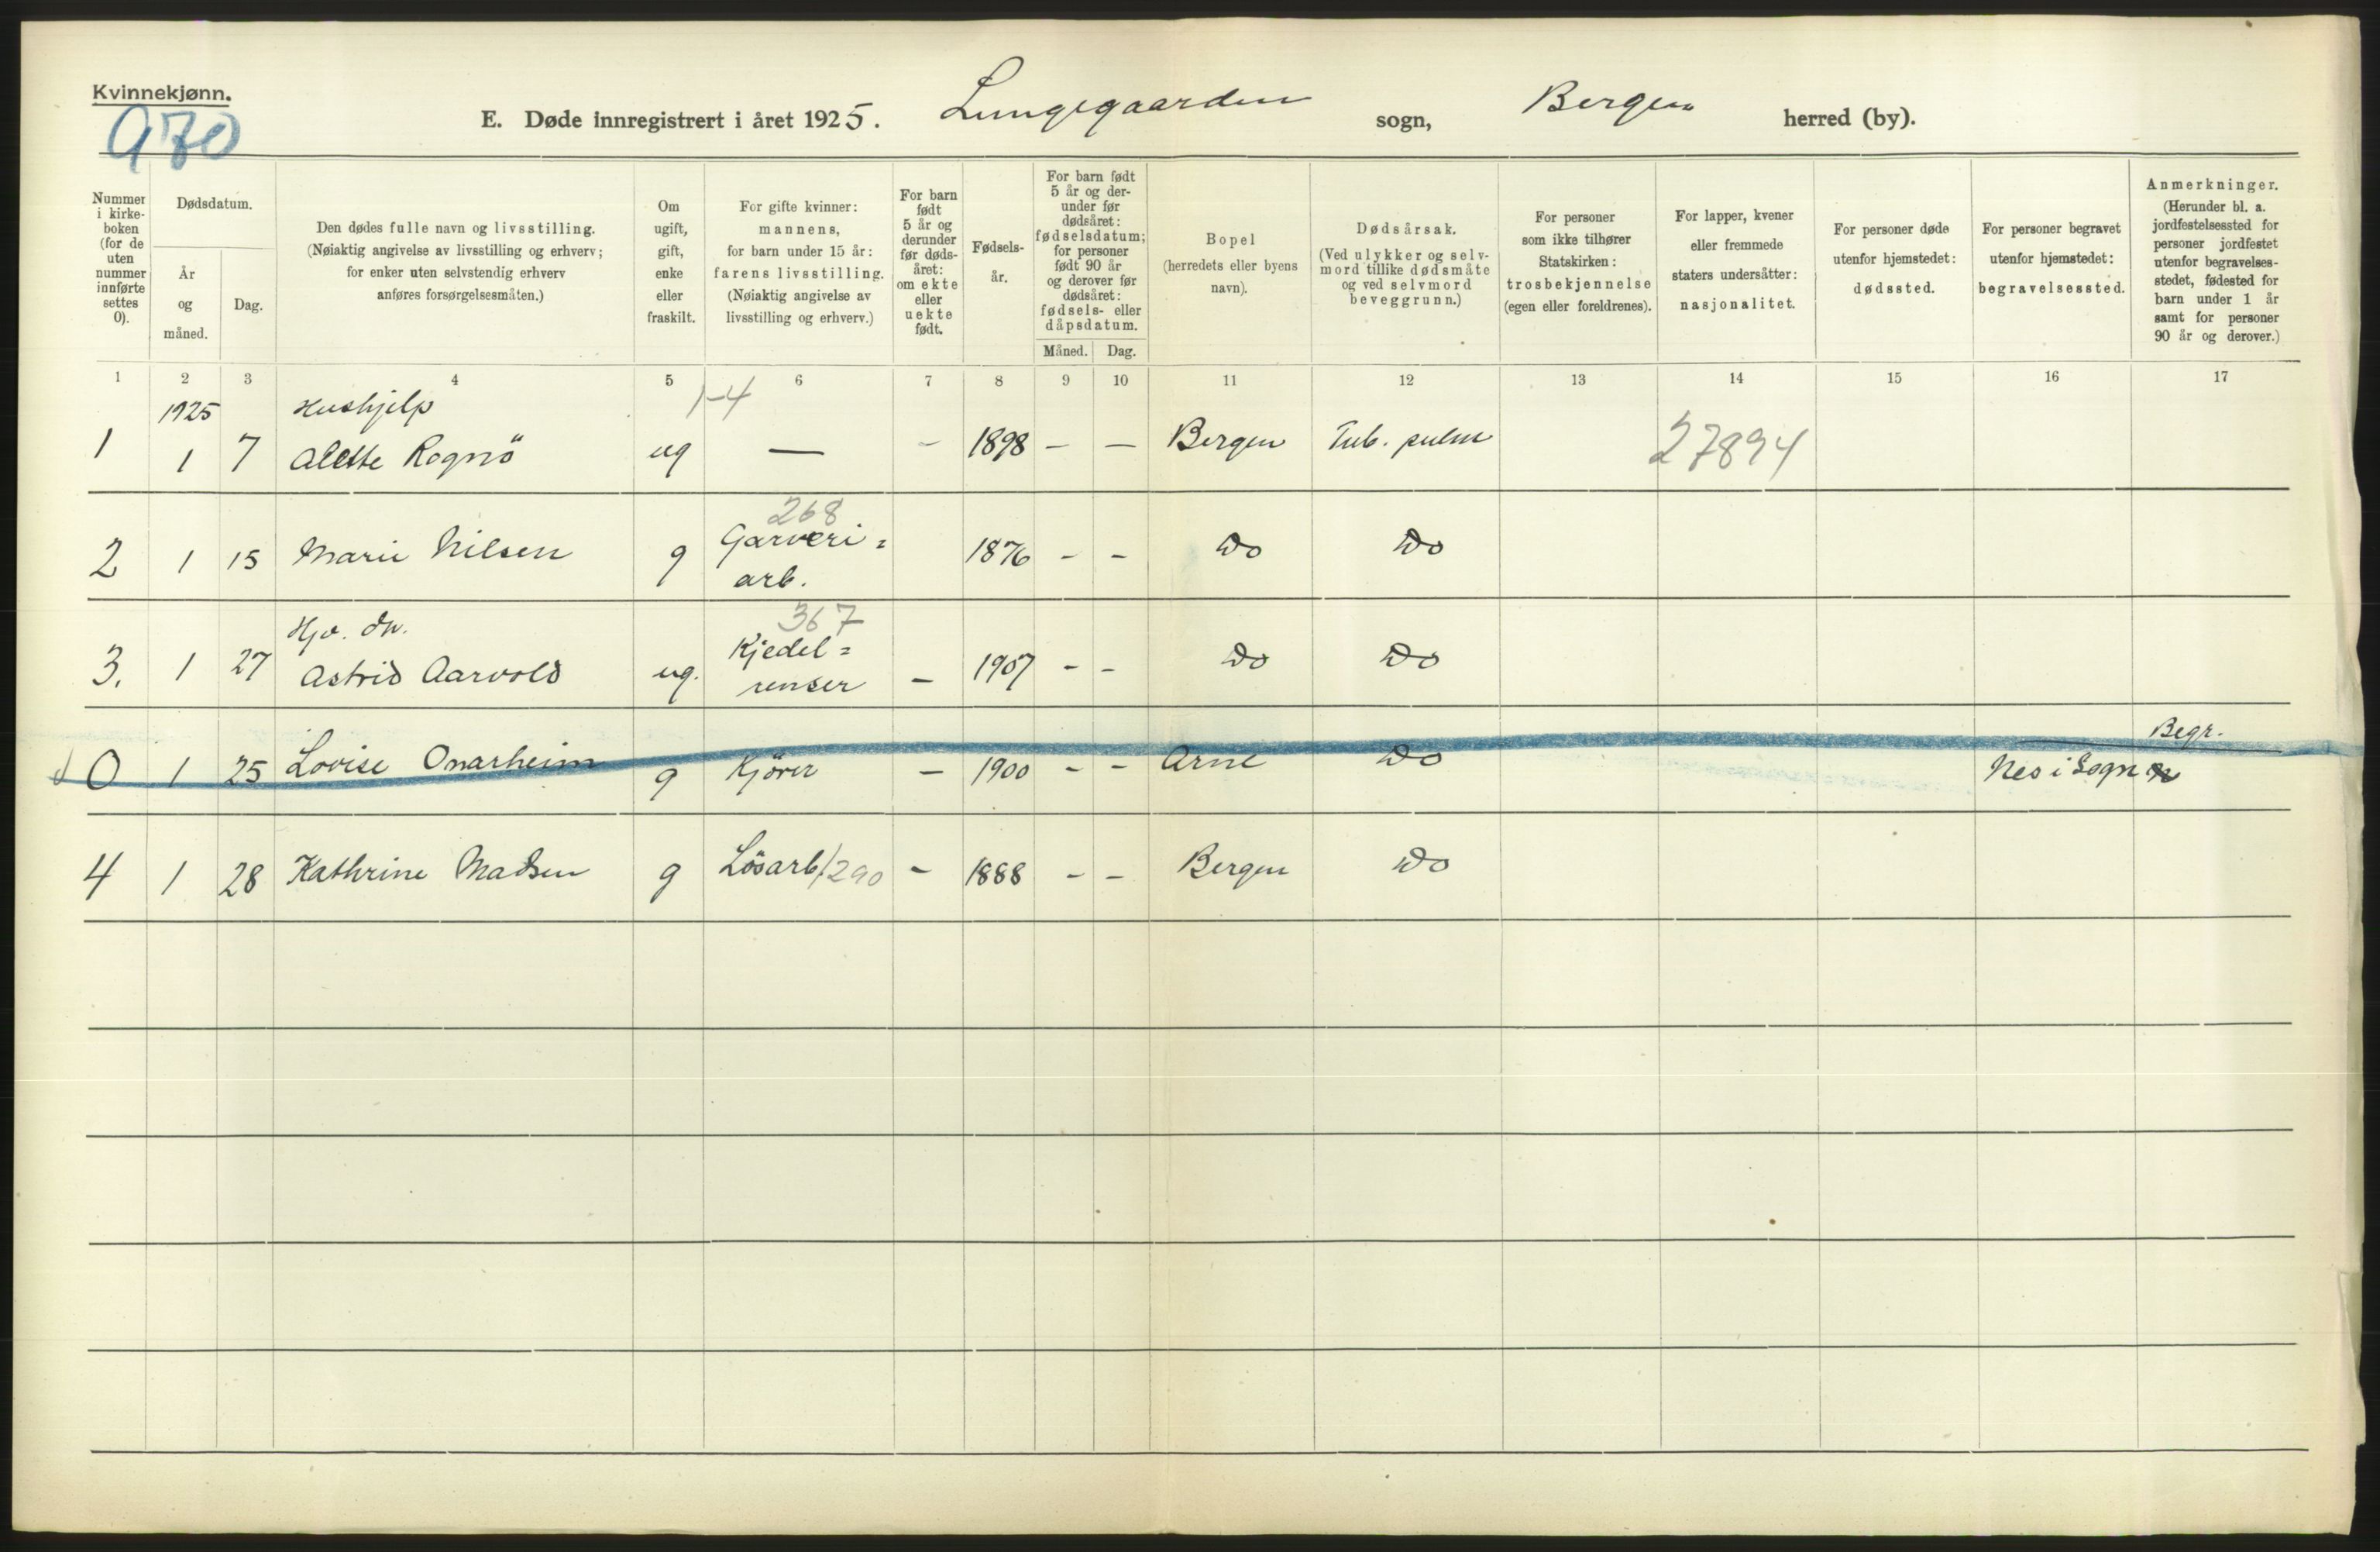 Kvinnekjønn.
970
E. Døde innregistrert i året 1925. Lungegaarden sogn, Bergen herred (by).
Nummer i kirke- boken (for de uten nummer innførte settes 0).
Dødsdatum.
År og måned.
Dag.
Den dødes fulle navn og livsstilling.
(Nøiaktig angivelse av livsstilling og erhverv;
for enker uten selvstendig erhverv
anføres forsørgelsesmåten.)
Om ugift, gift, enke eller fraskilt.
For gifte kvinner:
mannens,
for barn under 15 år:
farens livsstilling.
(Nøiaktig angivelse av
livsstilling og erhverv.)
For barn født 5 år og derunder før døds- året: om ekte eller uekte født.
Fødsels- år.
For barn født 5 år og der- under før dødsåret: fødselsdatum; for personer født 90 år og derover før dødsåret: fødsels- eller dåpsdatum.
Måned. Dag.
Bopel
(herredets eller byens
navn).
Dødsårsak.
(Ved ulykker og selv-
mord tillike dødsmåte
og ved selvmord
beveggrunn.)
For personer
som ikke tilhører
Statskirken:
trosbekjennelse
(egen eller foreldrenes).
For lapper, kvener
eller fremmede
staters undersåtter:
nasjonalitet.
For personer døde
utenfor hjemstedet:
dødssted.
For personer begravet
utenfor hjemstedet:
begravelsessted.
Anmerkninger.
(Herunder bl. a.
jordfestelsessted for
personer jordfestet
utenfor begravelses-
stedet, fødested for
barn under 1 år
samt for personer
90 år og derover.)
1 2 3 4 5 6 7 8 9 10 11 12 13 14 15 16 17
1925 Hushjelp 1-4
1 1 7 Alette Rognö ug — - 1898 - - Bergen Tub. pulm 27894
268
2 1 15 Marie Nilsen g Garveri= arb. 1876 - - Do Do
Hjv. dtr. 367
3. 1 27 Astrid Aarvold ug. Kjedel= renser - 1907 - - Do Do
Begr.
0 1 25 Lovise Onarheim g Kjörer - 1900 - - Arne Do Nes i Sogn
4 1 28 Kathrine Madsen g Lösarb/290 - 1888 - - Bergen Do